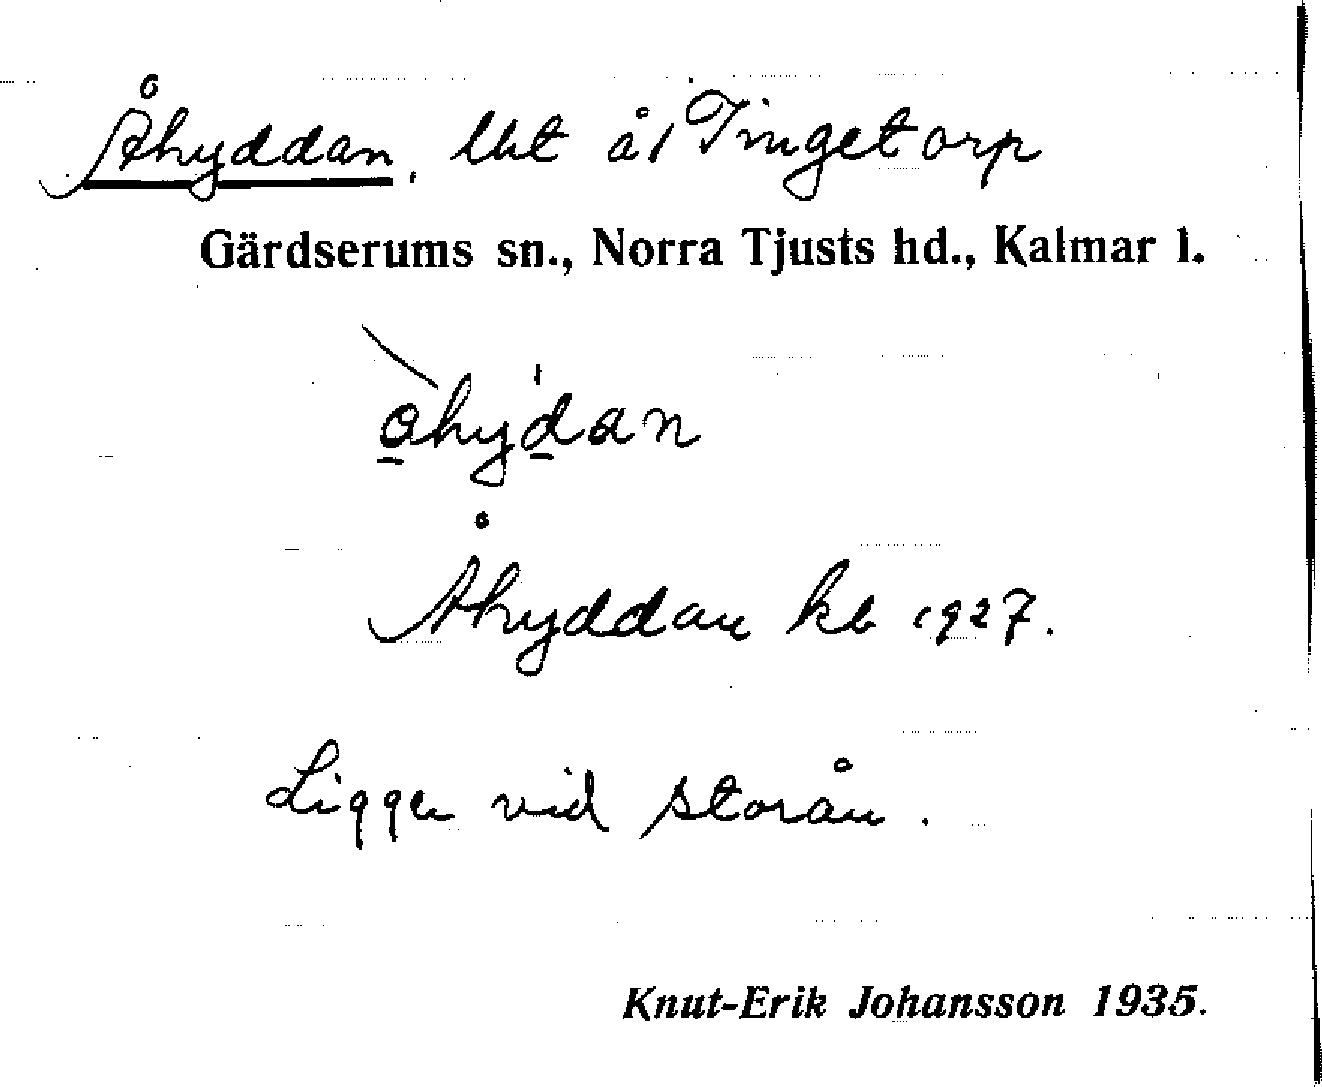 Åhyddan, lht å/ Tingetorp
Gärdserums sn., Norra Tjusts hd., Kalmar l.
åhydan
Åhyddan kb 1927.
Ligger vid storån.
Knut-Erik Johansson 1935.